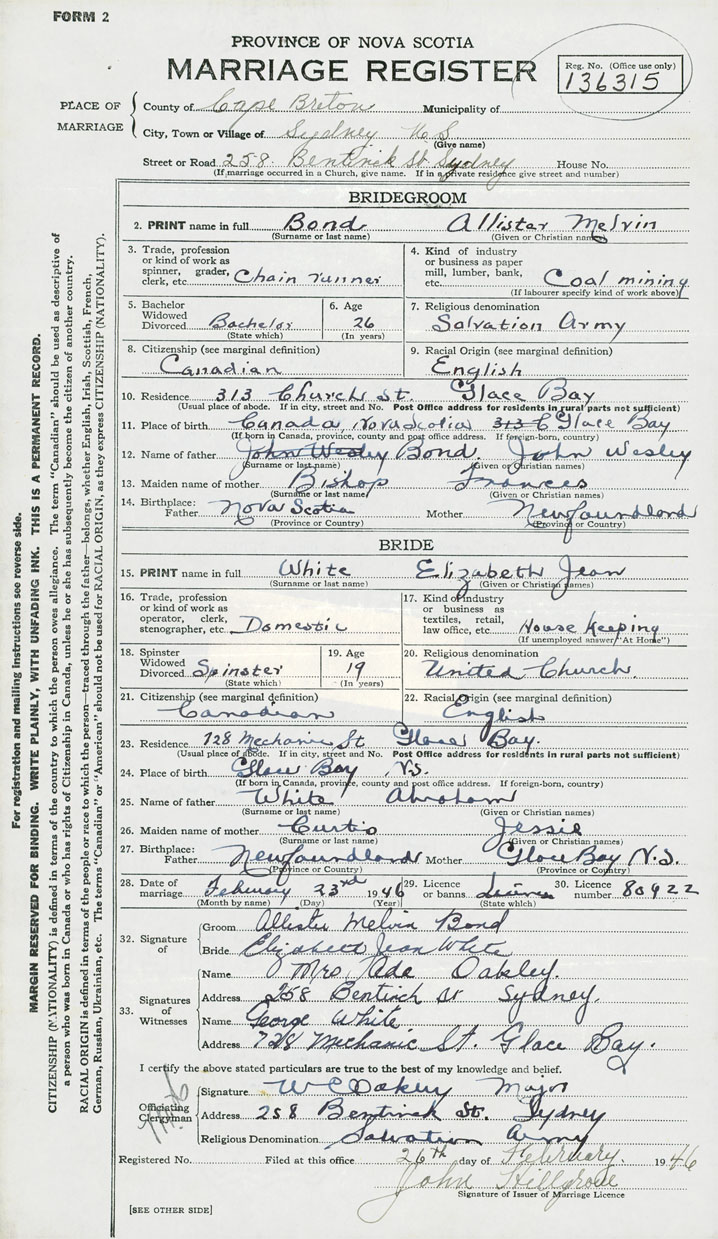 FORM 2
PROVINCE OF NOVA SCOTIA
MARRIAGE REGISTER
Reg. No. (Office use only)
136315
PLACE OF MARRIAGE
County of Cape Breton Municipality of
City, Town or Village of Sydney N.S
(Give name)
Street or Road 258 Bentinck St Sydney House No.
(If marriage occurred in a Church, give name. If in a private residence give street and number)
BRIDEGROOM
2. PRINT name in full Bond Allister Melvin
(Surname or last name) (Given or Christian name)
3. Trade, profession or kind of work as spinner, grader, clerk, etc. Chain runner
4. Kind of industry or business as paper mill, lumber, bank, etc. Coal mining
(If labourer specify kind of work above)
5. Bachelor Widowed Divorced Bachelor
(State which)
6. Age 26
(In years)
7. Religious denomination
Salvation Army
8. Citizenship (see marginal definition)
Canadian
9. Racial Origin (see marginal definition)
English
10. Residence 313 Church St. Glace Bay
(Usual place of abode. If in city, street and No. Post Office address for residents in rural parts not sufficient)
11. Place of birth Canada, Nova Scotia 313 C Glace Bay
(If born in Canada, province, county and post office address. If foreign-born, country)
12. Name of father John Wesley Bond. John Wesley
(Surname or last name) (Given or Christian names)
13. Maiden name of mother Bishop Frances
(Surname or last name) (Given or Christian names)
14. Birthplace: Father Nova Scotia Mother Newfoundland
(Province or Country) (Province or Country)
BRIDE
15. PRINT name in full White Elizabeth Jean
(Surname or last name) (Given or Christian names)
16. Trade, profession or kind of work as operator, clerk, stenographer, etc. Domestic
17. Kind of industry or business as textiles, retail, law office, etc. House Keeping
(If unemployed answer "At Home")
18. Spinster Widowed Divorced Spinster
(State which)
19. Age 19
(In years)
20. Religious denomination
United Church.
21. Citizenship (see marginal definition)
Canadian
22. Racial Origin (see marginal definition)
English
23. Residence 728 Mechanic St Glace Bay.
(Usual place of abode. If in city, street and No. Post Office address for residents in rural parts not sufficient)
24. Place of birth Glace Bay N.S.
(If born in Canada, province, county and post office address. If foreign-born, country)
25. Name of father White Abraham
(Surname or last name) (Given or Christian names)
26. Maiden name of mother Curtis Jessie
(Surname or last name) (Given or Christian names)
27. Birthplace: Father Newfoundland Mother Glace Bay N.S.
(Province or Country) (Province or Country)
28. Date of marriage February 23rd 1946
(Month by name) (Day) (Year)
29. Licence or banns
(State which)
30. Licence number 80922
32. Signature of
Groom Allister Melvin Bond
Bride Elizabeth Jean White
33. Signatures of Witnesses
Name Mrs Ada Oakley.
Address 258 Bentinck St Sydney.
Name George White
Address 728 Mechanic St. Glace Bay.
I certify the above stated particulars are true to the best of my knowledge and belief.
Officiating Clergyman
Signature W C Oakley Major
Address 258 Bentinck St. Sydney
Religious Denomination Salvation Army
Registered No. Filed at this office 26th day of February. 1946
John Hillgrove
Signature of Issuer of Marriage Licence
[SEE OTHER SIDE]
For registration and mailing instructions see reverse side.
MARGIN RESERVED FOR BINDING. WRITE PLAINLY, WITH UNFADING INK. THIS IS A PERMANENT RECORD.
CITIZENSHIP (NATIONALITY) is defined in terms of the country to which the person owes allegiance. The term "Canadian" should be used as descriptive of
a person who was born in Canada or who has rights of Citizenship in Canada, unless he or she has subsequently become the citizen of another country.
RACIAL ORIGIN is defined in terms of the people or race to which the person—traced through the father—belongs, whether English, Irish, Scottish, French,
German, Russian, Ukrainian, etc. The terms "Canadian" or "American" should not be used for RACIAL ORIGIN, as they express CITIZENSHIP (NATIONALITY).